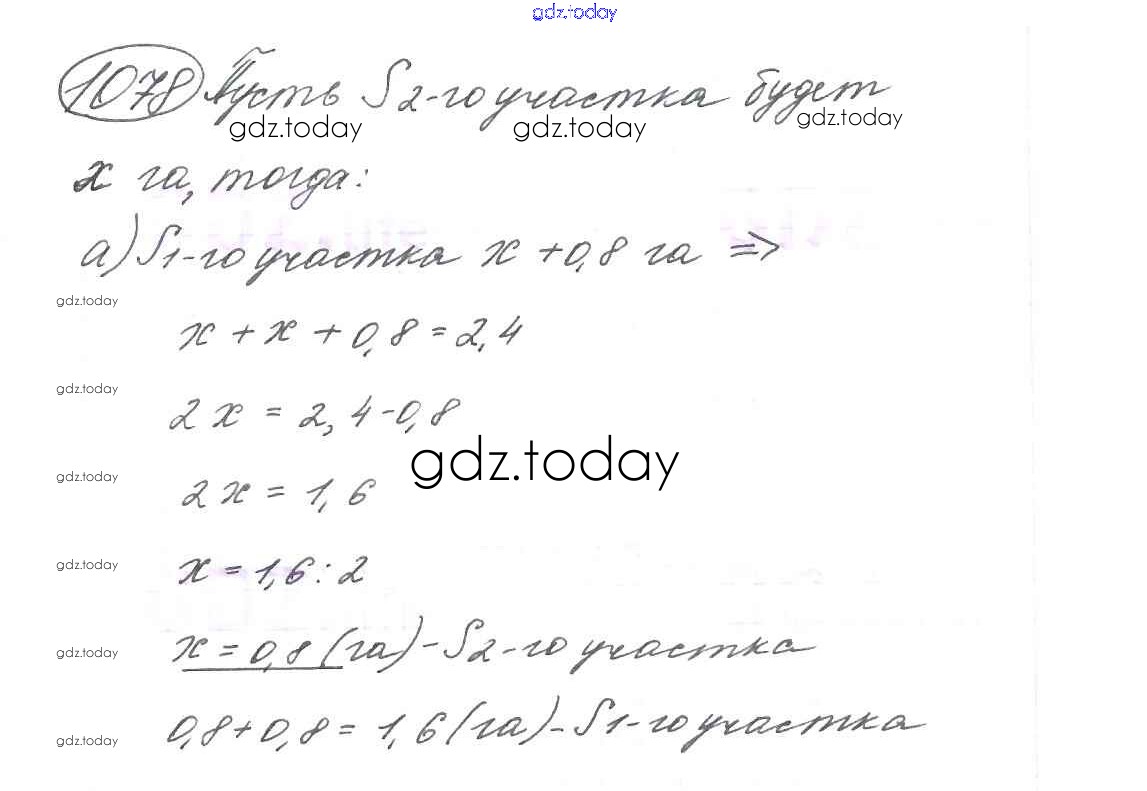 gdz.today
1078 Пусть S 2-го участка будет
gdz.today gdz.today gdz.today
x га, тогда:
а) S 1-го участка x + 0,8 га =>
gdz.today
x + x + 0,8 = 2,4
gdz.today
2x = 2,4 - 0,8
gdz.today
gdz.today
2x = 1,6
gdz.today
x = 1,6 : 2
gdz.today
x = 0,8 (га) - S 2-го участка
gdz.today
0,8 + 0,8 = 1,6 (га) - S 1-го участка